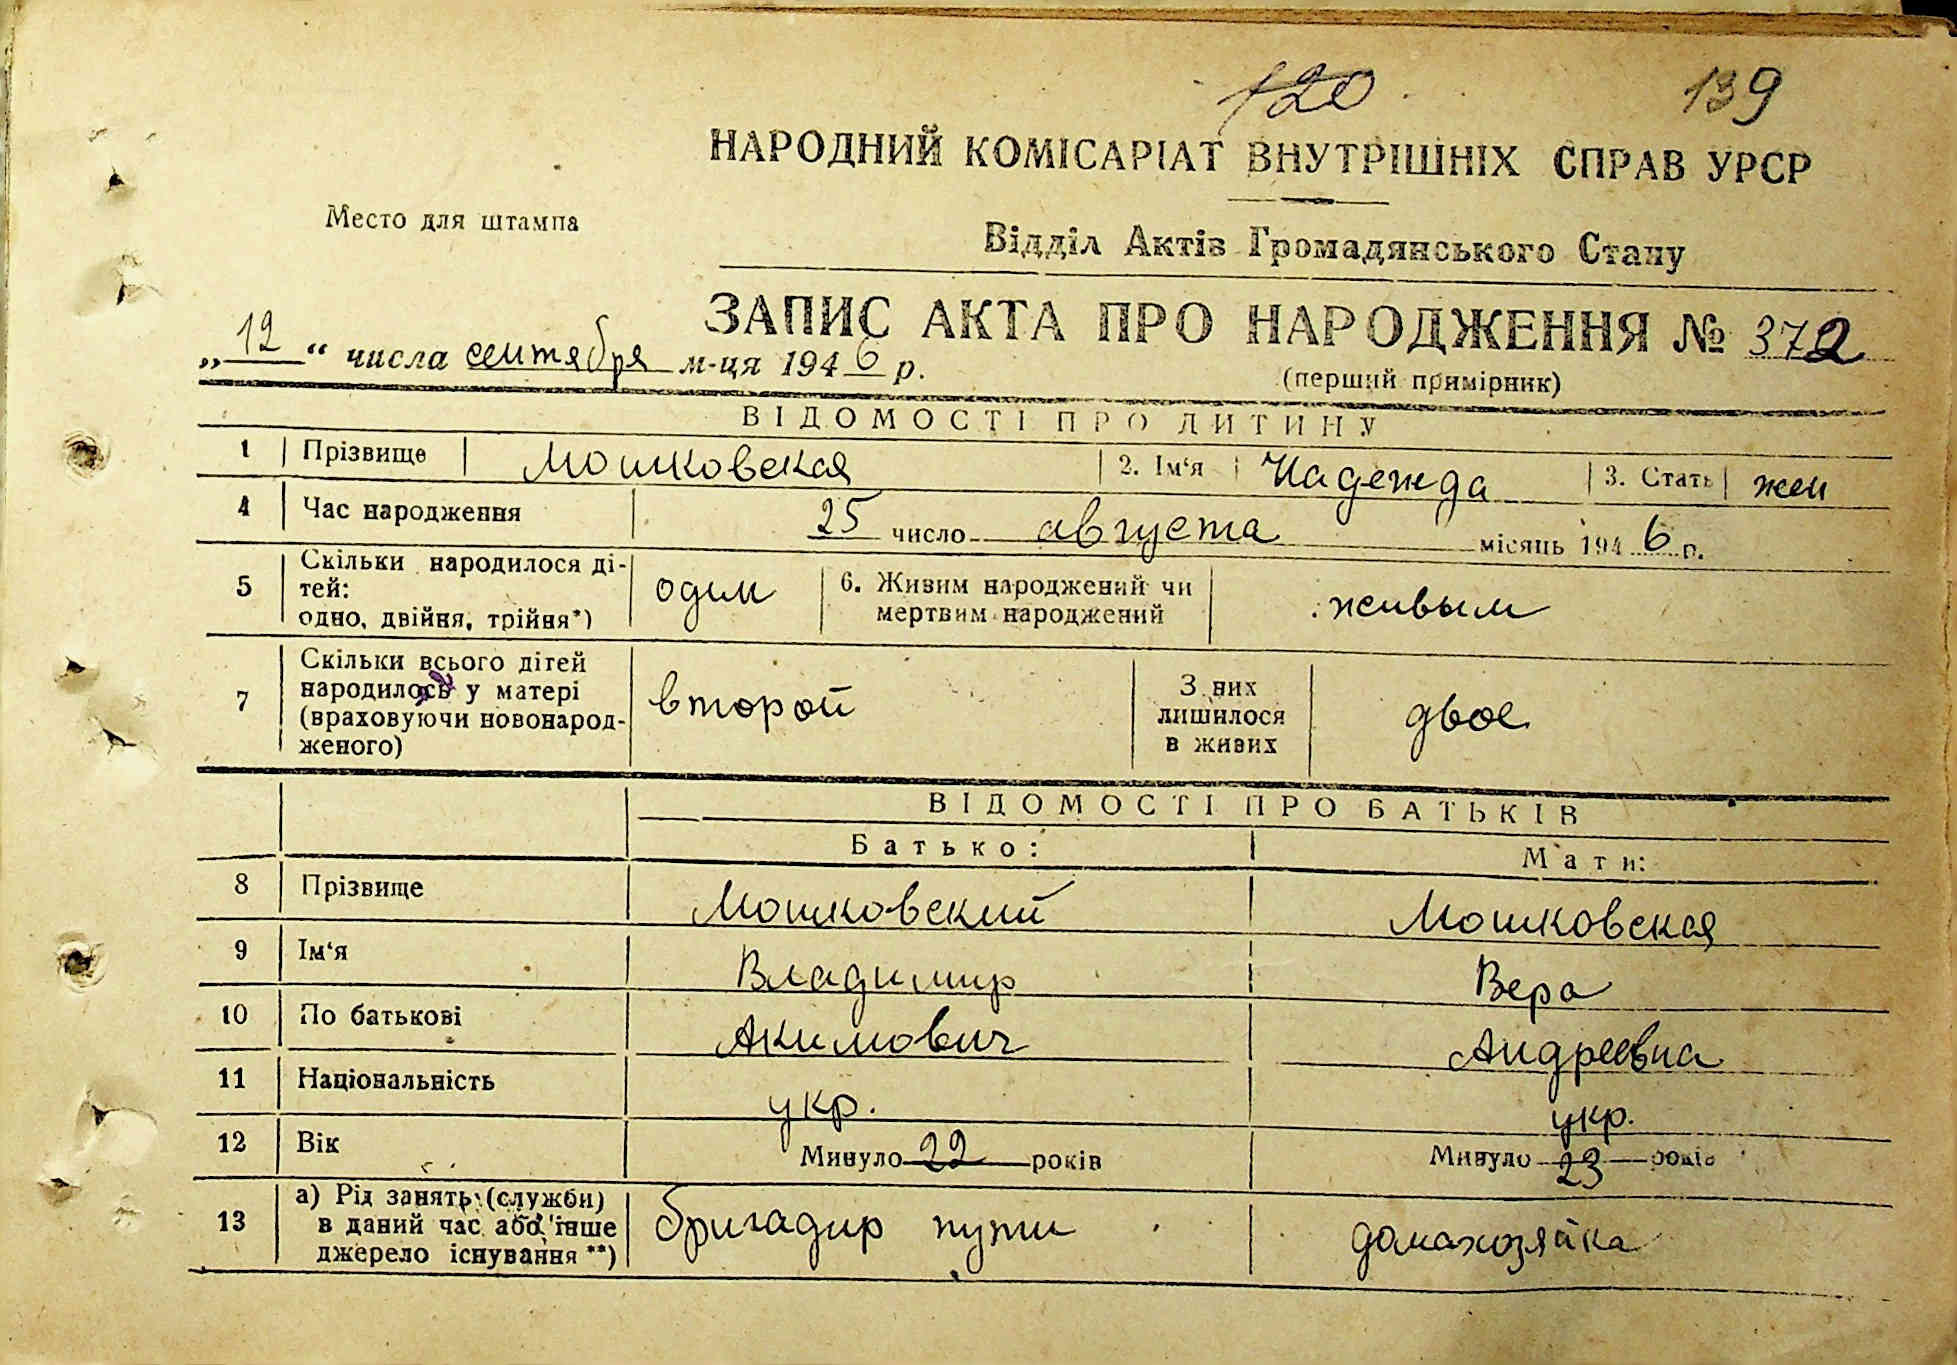 120 139
НАРОДНИЙ КОМІСАРІАТ ВНУТРІШНІХ СПРАВ УРСР
Место для штампа
Відділ Актів Громадянського Стану
ЗАПИС АКТА ПРО НАРОДЖЕННЯ № 372
„12“ числа сентября м-ця 1946 р.
(перший примірник)
ВІДОМОСТІ ПРО ДИТИНУ
1 Прізвище Мошковская 2. Ім‘я Надежда 3. Стать жен
4 Час народження 25 число августа місяць 1946 р.
5 Скільки народилося ді-
тей:
одно, двійня, трійня*) один 6. Живим народжений чи
мертвим народжений живым
7 Скільки всього дітей
народилось у матері
(враховуючи новонарод-
женого) второй З них
лишилося
в живих двое
ВІДОМОСТІ ПРО БАТЬКІВ
Батько: Мати:
8 Прізвище Мошковский Мошковская
9 Ім‘я Владимир Вера
10 По батькові Акимович Андреевна
11 Національність укр. укр.
12 Вік Минуло 22 років Минуло 23 років
13 а) Рід занять (служби)
в даний час або інше
джерело існування **) бригадир пути домахозяйка